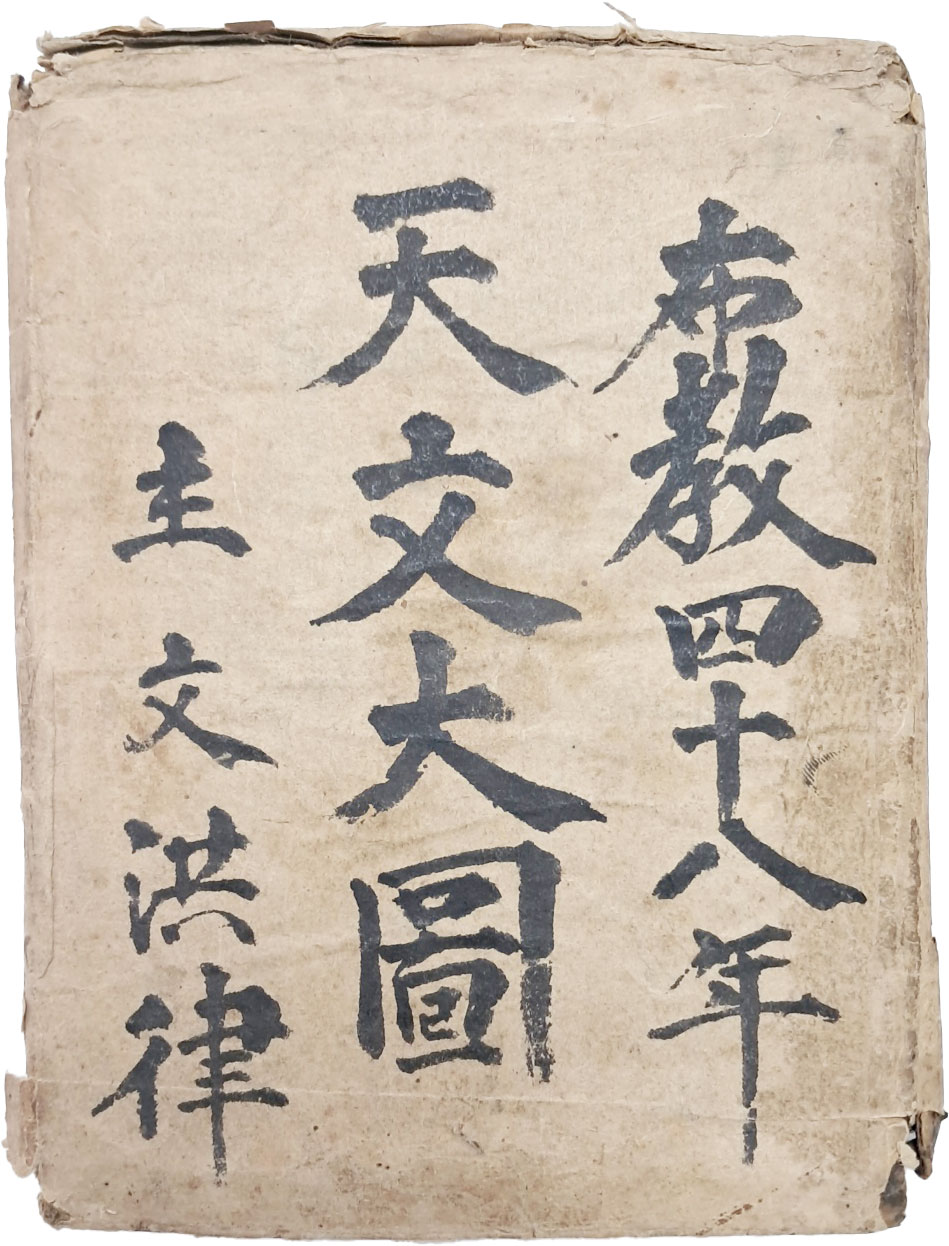 布教四十八年
天文大圖
主文洪律